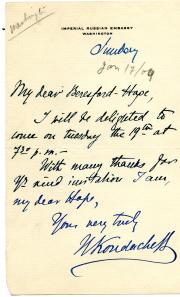 Washington
IMPERIAL RUSSIAN EMBASSY
WASHINGTON
Sunday
Jan 17/09
My dear Beresford-Hope,
I will be delighted to
come on tuesday the 19th at
7 30 p.m.—
With many thanks for
yr kind invitation I am,
my dear Hope,
Yours very truly